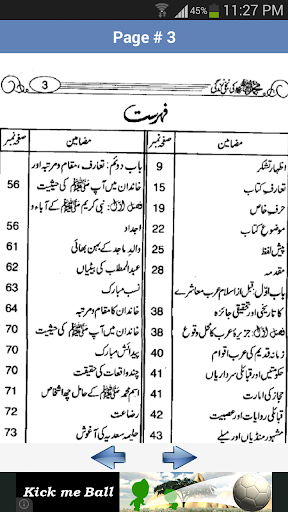 45% 11:27 PM
Page # 3
3
فہرست
مضامین صفحہ نمبر
اظہار تشکر 9
تعارف کتاب 15
حرف خاص 19
موضوع کتاب 22
پیش لفظ 25
مقدمہ 28
باب اوّل: قبل از اسلام عرب معاشرے
کا تاریخی اور تحقیقی جائزہ 38
فصل اوّل: جزیرۂ عرب کا محل وقوع 38
زمانہ قدیم کی عرب اقوام 40
حکومتیں اور قبائلی سرداریاں 41
حجاز کی امارت 41
قبائلی روایات اور عصبیت 42
مشہور منڈیاں اور میلے 43
مضامین صفحہ نمبر
باب دوئم: تعارف، مقام و مرتبہ اور
خاندان میں آپ ﷺ کی حیثیت 56
فصل اوّل: نبی کریم ﷺ کے آباء و
اجداد 56
والد ماجد کے بہن بھائی 61
عبدالمطلب کی بیٹیاں 62
نسب مبارک 63
خاندان کا مقام و مرتبہ 64
خاندان میں آپ ﷺ کی حیثیت 70
پیدائش مبارک 70
چند واقعات کی حقیقت 70
اسم محمد ﷺ کے حامل چھ اشخاص 71
رضاعت 72
حلیمہ سعدیہ کی آغوش 73
Kick me Ball